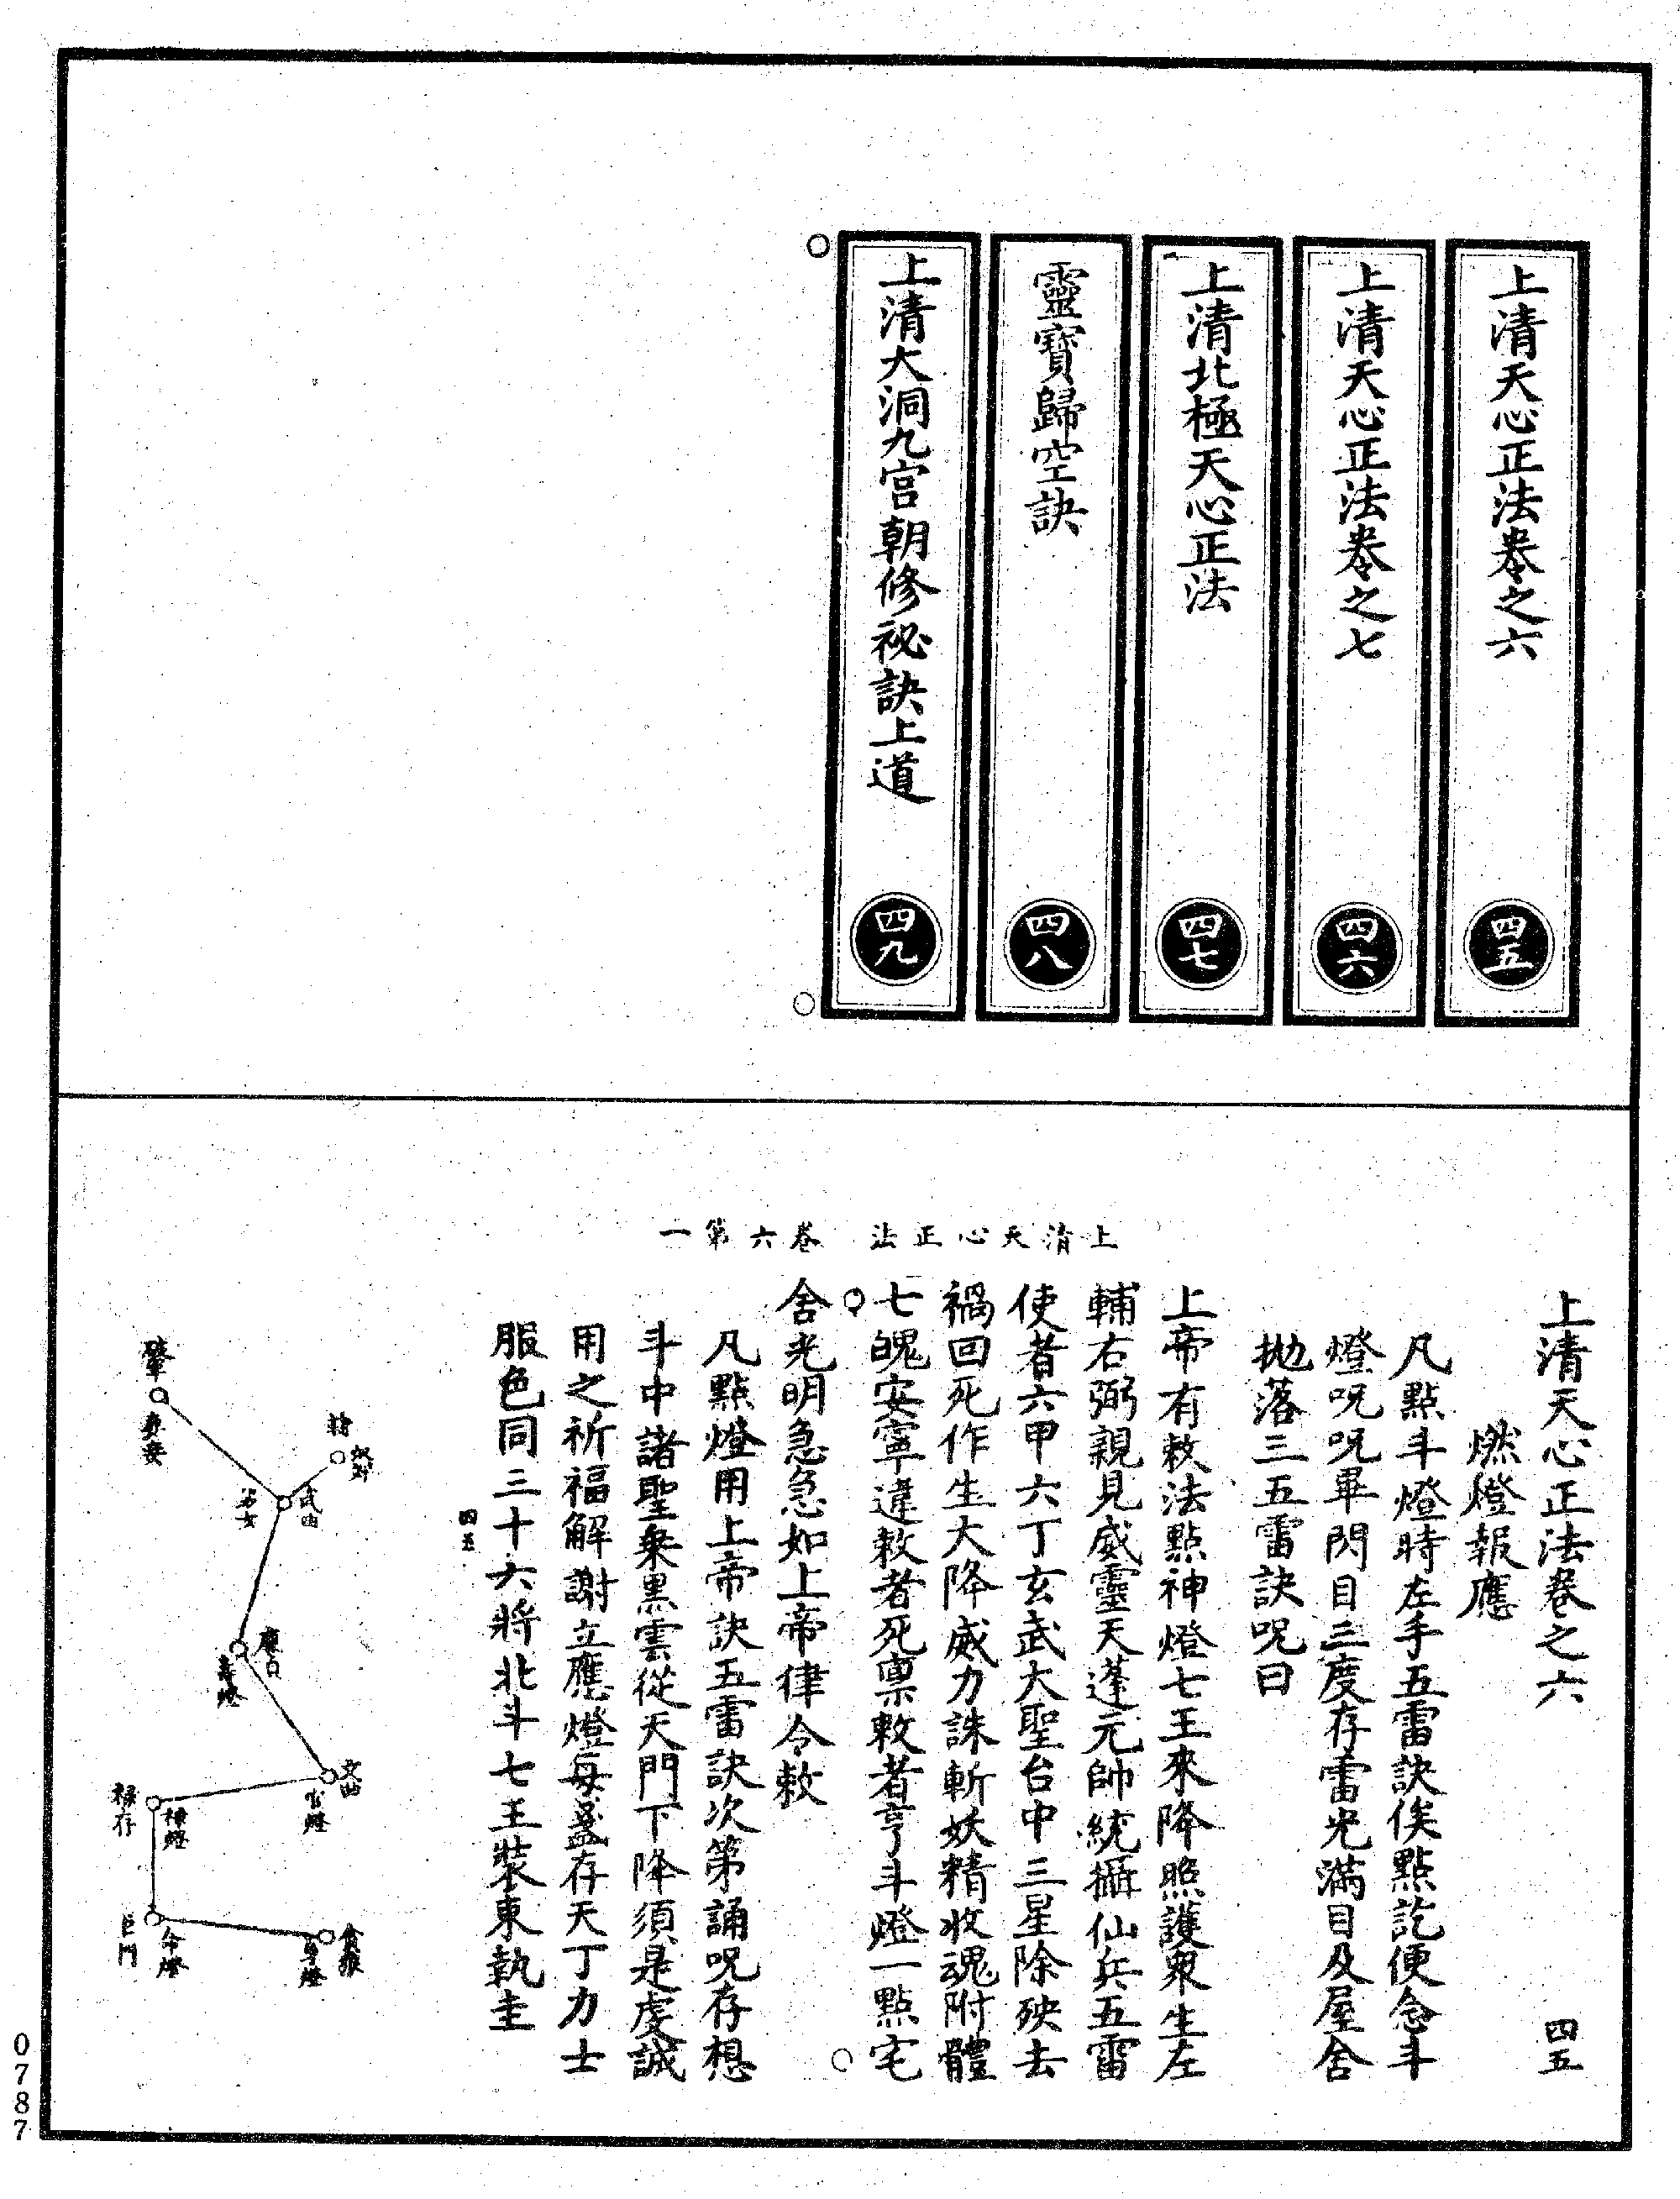 上清天心正法卷之六
四五
上清天心正法卷之七
四六
上清北極天心正法
四七
靈寶歸空訣
四八
上清大洞九宫朝修祕訣上道
四九
上清天心正法 卷六第一
上清天心正法卷之六 四五
燃燈報應
凡點斗燈時左手五雷訣俟點訖便念斗
燈呪呪畢閃目三度存雷光滿目及屋舍
拋落三五雷訣呪曰
上帝有敕法點神燈七王來降照護衆生左
輔右弼親見威靈天蓬元帥統攝仙兵五雷
使者六甲六丁玄武大聖台中三星除殃去
禍回死作生大降威力誅斬妖精收魂附體
七魄安寧違敕者死禀敕者亨斗燈一點宅
舍光明急急如上帝律令敕
凡點燈用上帝訣五雷訣次第誦呪存想
斗中諸聖乘黑雲從天門下降須是虔誠
用之祈福解謝立應燈每盞存天丁力士
服色同三十六將北斗七王裝束執圭
四五
武曲
男女
廉貞
文曲
官燈
祿存
祿燈
巨門
命燈
貪狼
身燈
0787